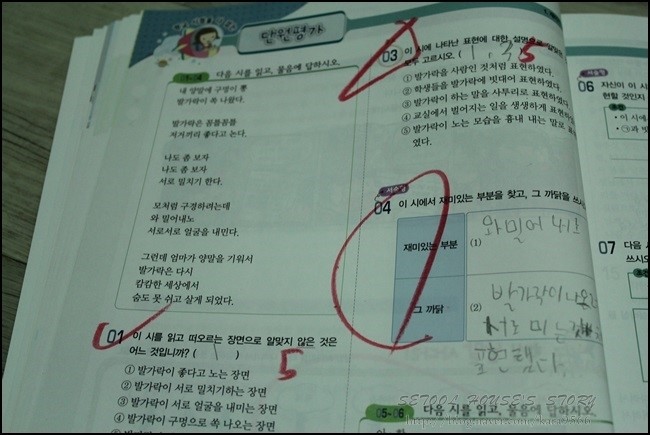 단원평가
다음 시를 읽고, 물음에 답하시오.
내 양말에 구멍이 뽕
발가락이 쏙 나왔다.
발가락은 꼼틀꼼틀
저거끼리 좋다고 논다.
나도 좀 보자
나도 좀 보자
서로 밀치기 한다.
모처럼 구경하려는데
와 밀어내노
서로서로 얼굴을 내민다.
그런데 엄마가 양말을 기워서
발가락은 다시
캄캄한 세상에서
숨도 못 쉬고 살게 되었다.
01 이 시를 읽고 떠오르는 장면으로 알맞지 않은 것은
어느 것입니까? ( )
5
① 발가락이 좋다고 노는 장면
② 발가락이 서로 밀치기하는 장면
③ 발가락이 서로 얼굴을 내미는 장면
④ 발가락이 구멍으로 쏙 나오는 장면
03 이 시에 나타난 표현에 대한 설명으로 알맞은
모두 고르시오. ( 1,
5
① 발가락을 사람인 것처럼 표현하였다.
② 학생들을 발가락에 빗대어 표현하였다.
③ 발가락이 하는 말을 사투리로 표현하였다
④ 교실에서 벌어지는 일을 생생하게 표현하
⑤ 발가락이 노는 모습을 흉내 내는 말로
였다.
서술형
04 이 시에서 재미있는 부분을 찾고, 그 까닭을 쓰시
재미있는 부분
(1)
와밀어내노
그 까닭
(2)
발가락이
서로 미는
표현했다.
05-06 다음 시를 읽고, 물음에 답하시오
06 자신이 이 시
현할 것인지
• 이 시에
07 다음
쓰시오
SETOOL HOUSE'S STORY